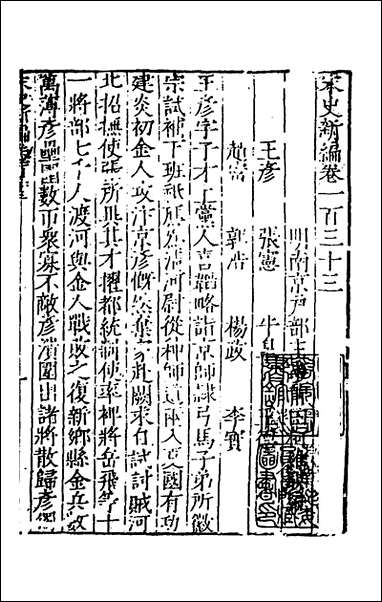 宋史新編卷一百三十三
明南京戶部主
王彥　張憲　牛
趙密　郭浩　楊政　李寶
王彥字子才上黨人喜韜略詣京師隸弓馬子弟所徽
宗試補下班祗應為清河尉從种師道兩入夏國有功
建炎初金人攻汴京彥慨然棄家赴闕求自試討賊河
北招撫使張所異其才擢都統制使率裨將岳飛等十
一將部七千人渡河與金人戰敗之復新鄉縣金兵
萬薄彥壘圍數匝眾寡不敵彥潰圍出諸將散歸彥